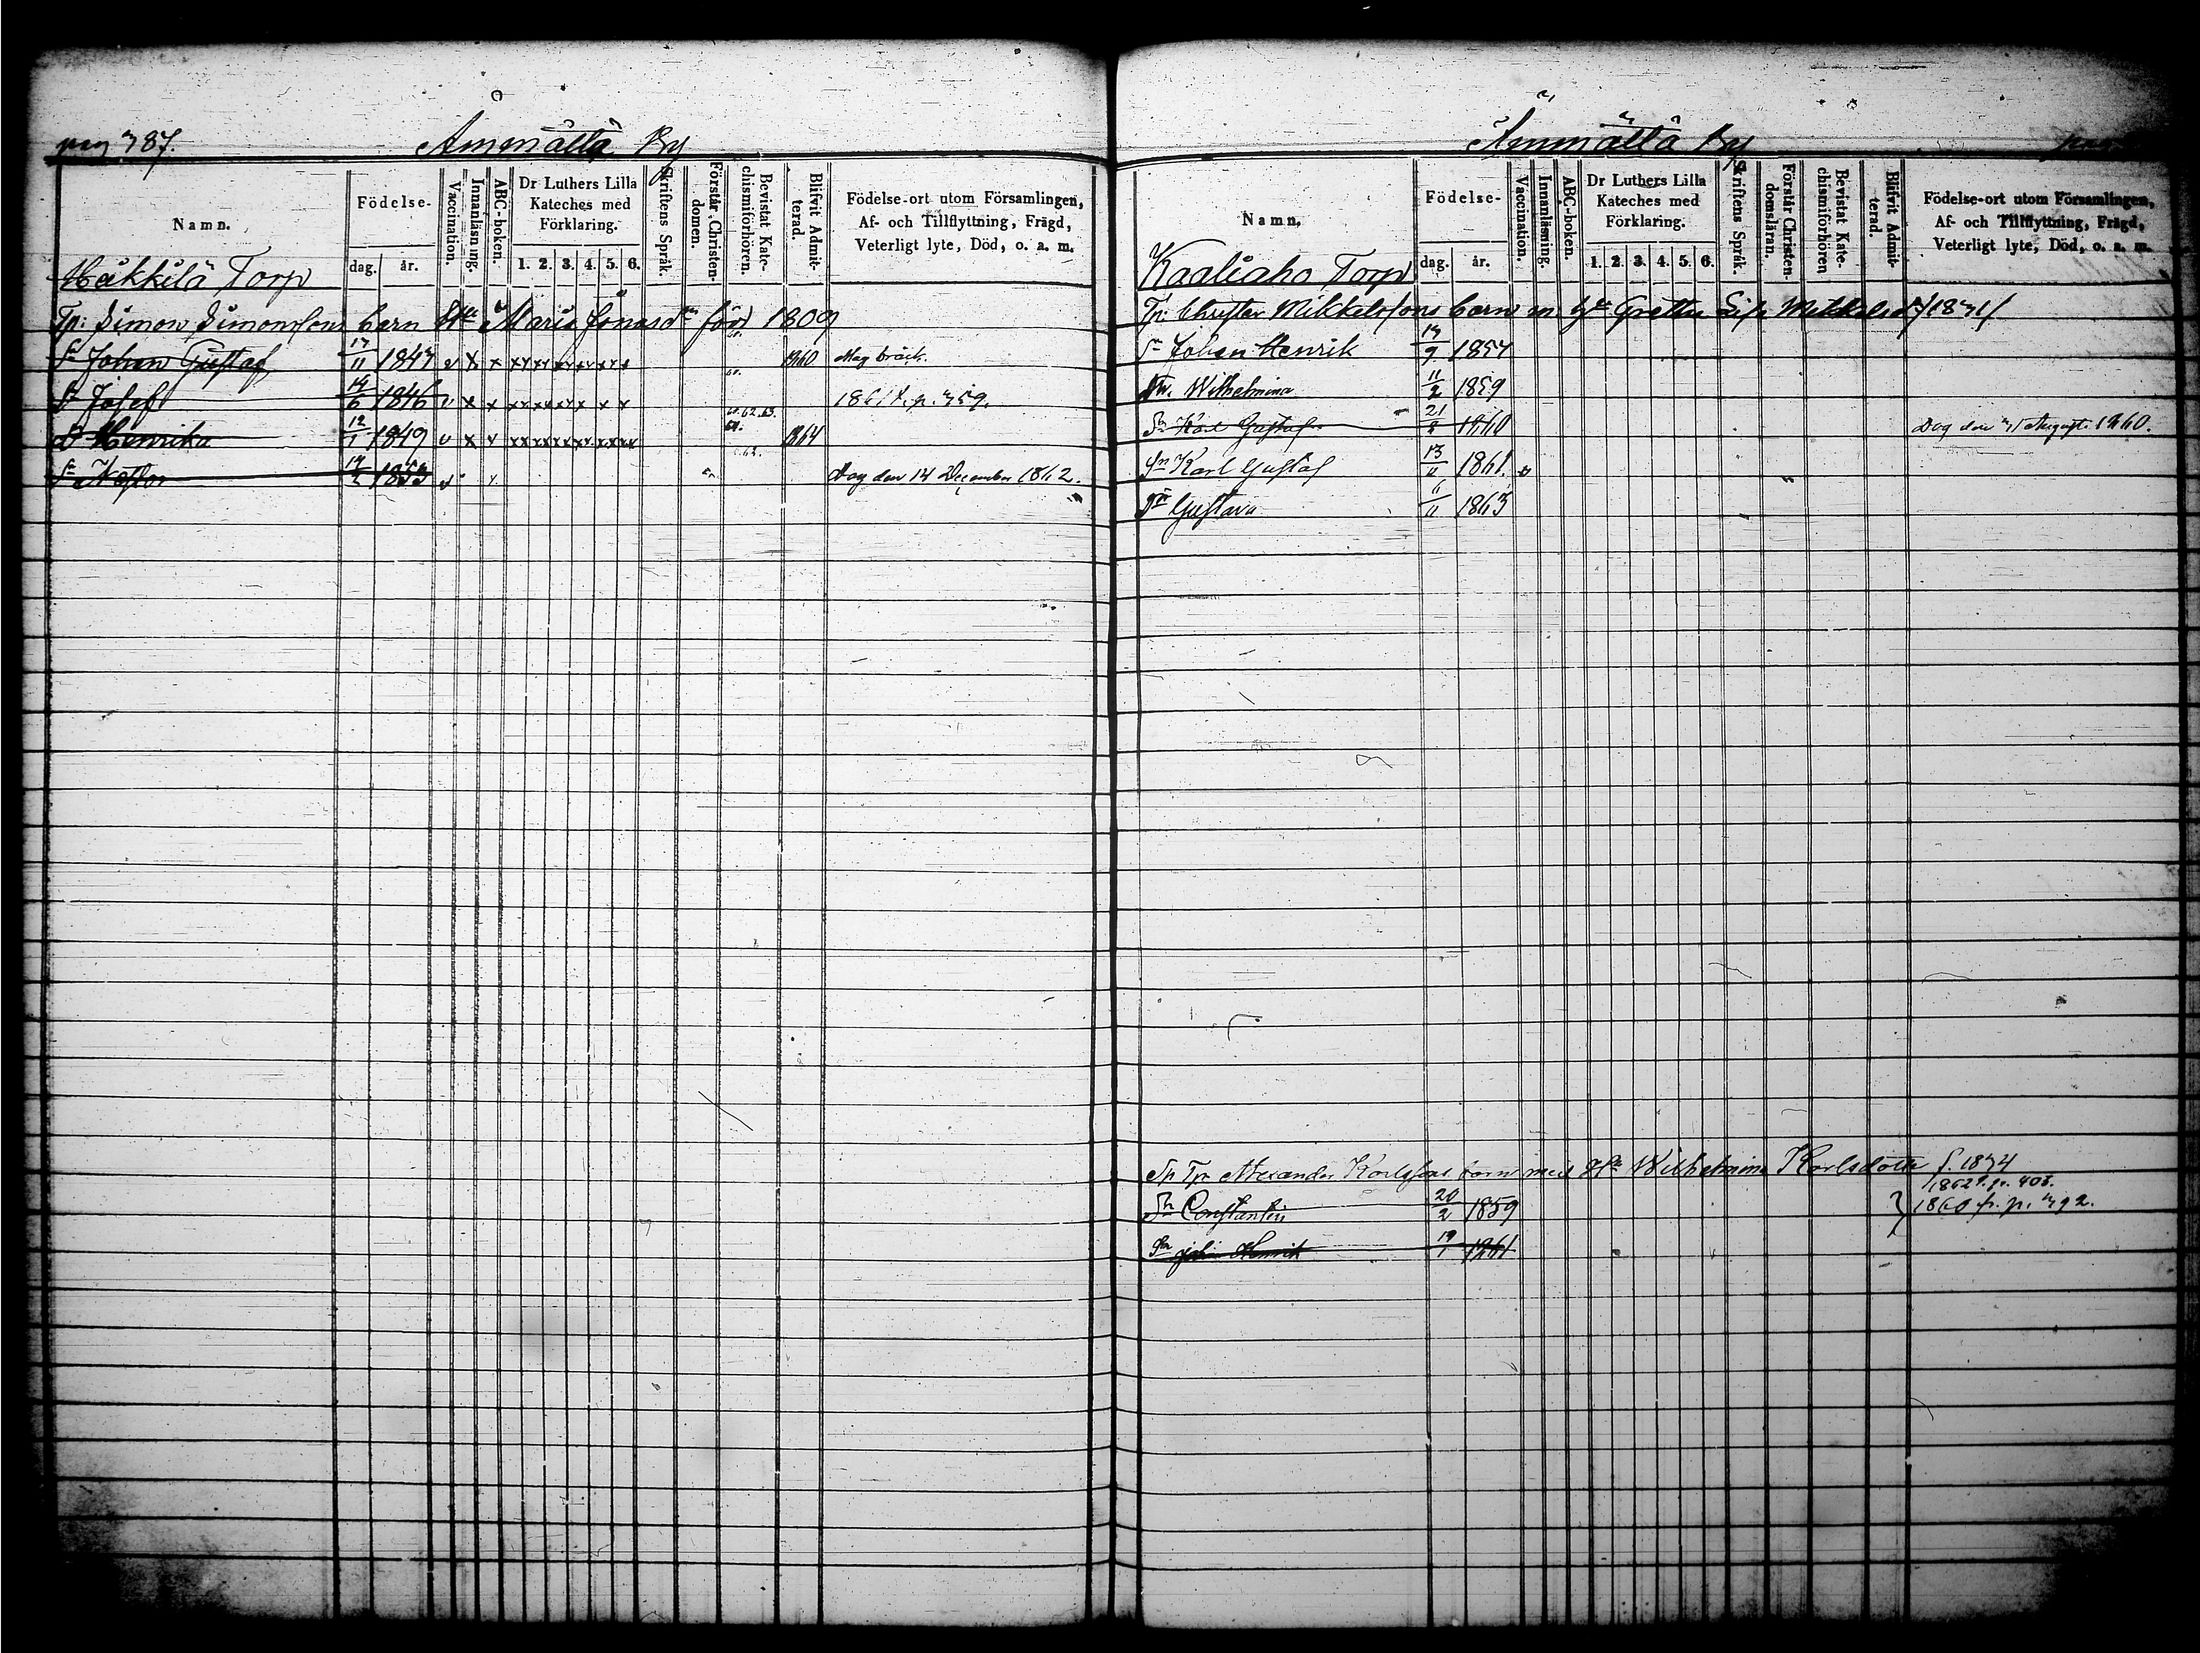 pag 387.
Ämmälä By
Namn.
Födelse-
dag. år.
Vaccination.
Innanläsning.
ABC-boken.
Dr Luthers Lilla
Kateches med
Förklaring.
1. 2. 3. 4. 5. 6.
Skriftens Språk.
Förstår Christen-
domen.
Bevistat Kate-
chismiförhören.
Blifvit Admit-
terad.
Födelse-ort utom Församlingen,
Af- och Tillflyttning, Frägd,
Veterligt lyte, Död, o. a. m.
Mäkkilä Torp
Tp: Simon Simonssons barn Maria Jonasdr född 1809
Sn Johan Gustaf 17/11 1847 v x x 1860
Sn Josef 14/6 1846 v x x 1861 t. p. 359.
Dr Henrika 12/1 1849 v x v 60.62.63. 1864
Sn Nestor 1853 v 62. Dog den 14 December 1862.
Ämmälä By
Namn.
Födelse-
dag. år.
Vaccination.
Innanläsning.
ABC-boken.
Dr Luthers Lilla
Kateches med
Förklaring.
1. 2. 3. 4. 5. 6.
Skriftens Språk.
Förstår Christen-
domsläran.
Bevistat Kate-
chismiförhören
Blifvit Admit-
terad.
Födelse-ort utom Församlingen,
Af- och Tillflyttning, Frägd,
Veterligt lyte, Död, o. a. m.
Kaaliaho Torp
Tp: Christer Mikkelssons barn m. Greta Lisa Mikkelsdr
Sn Johan Henrik 19/9 1857
Dr. Wilhelmina 11/2 1859
Sn Karl Gustaf 21/2 1860 Dog den 31 August 1860.
Sn Karl Gustaf 13/11 1861. v
Dr Gustava 11/11 1863
Tp Alexander Karlssons barn med Wilhelmina Karlsdotter f. 1834
1862 t. p. 408.
Sn Constantin 20/2 1859 1860 fr. p. 392.
Sn Johan Henrik 19/1 1861